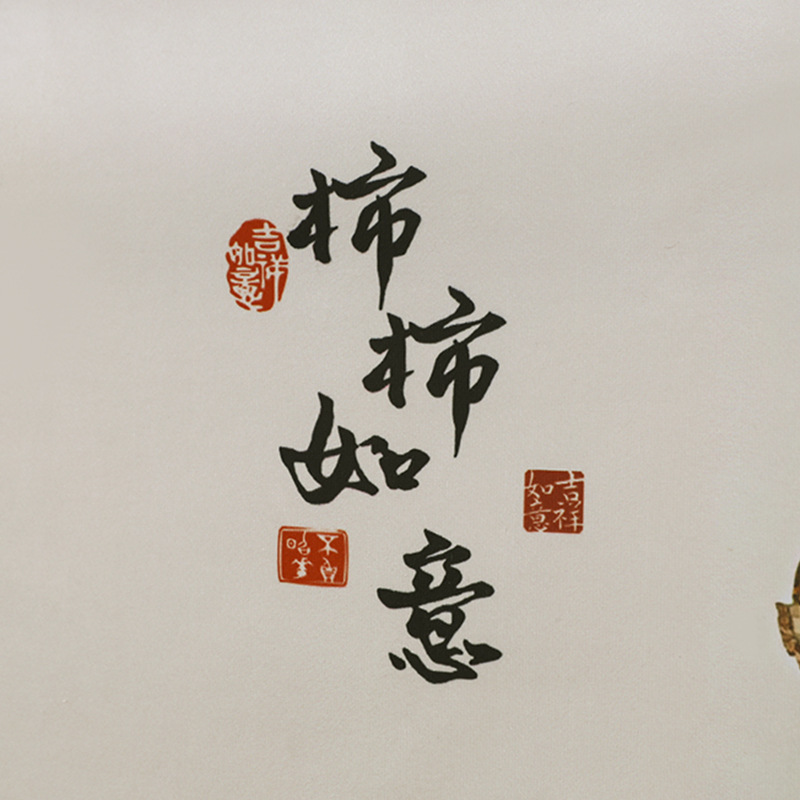 柿柿如意
吉祥如意
吉祥如意